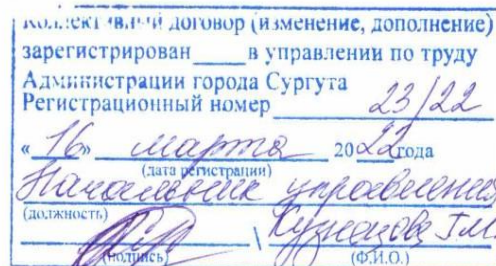 Коллективный договор (изменение, дополнение)
зарегистрирован ____ в управлении по труду
Администрации города Сургута
Регистрационный номер 23/22
«16» марта 2022 года
(дата регистрации)
Начальник управления
(должность)
\ Кузнецова Г.М.
(подпись) (Ф.И.О.)